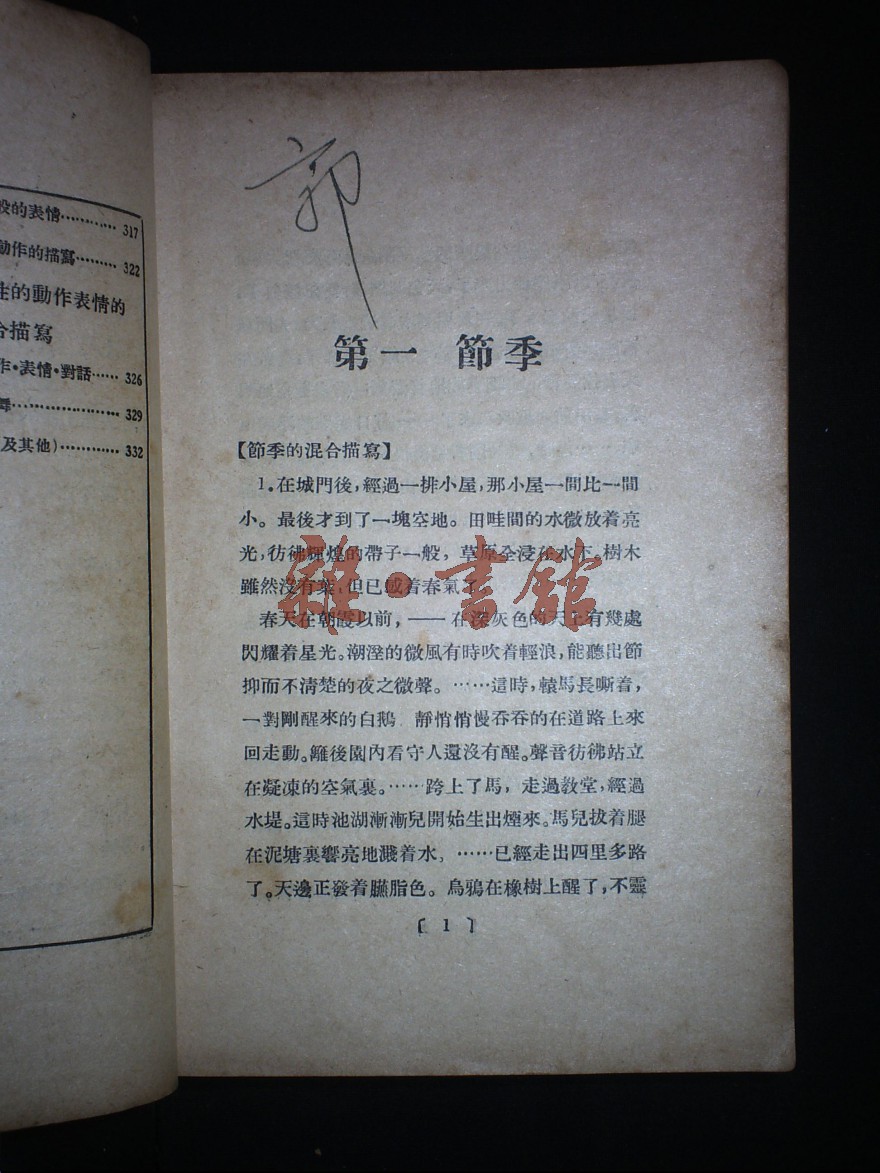 般的表情………… 317
動作的描寫……… 322
性的動作表情的
合描寫
作·表情·對話…… 326
………………… 329
及其他)………… 332
郭
第一 節季
【節季的混合描寫】
1。在城門後，經過一排小屋，那小屋一間比一間
小。最後才到了一塊空地。田畦間的水微放着亮
光，彷彿輝煌的帶子一般，草原全浸在水下。樹木
雖然沒有葉，但已感着春氣了
春天在朝霞以前，——在深灰色的天上有幾處
閃耀着星光。潮溼的微風有時吹着輕浪，能聽出節
抑而不清楚的夜之微聲。……這時，轅馬長嘶着，
一對剛醒來的白鵝 靜悄悄慢吞吞的在道路上來
回走動。籬後園內看守人還沒有醒。聲音彷彿站立
在凝凍的空氣裏。……跨上了馬，走過教堂，經過
水堤。這時池湖漸漸兒開始生出煙來。馬兒拔着腿
在泥塘裏響亮地濺着水，……已經走出四里多路
了。天邊正發着臙脂色。烏鴉在橡樹上醒了，不靈
〔1〕
雜·書館